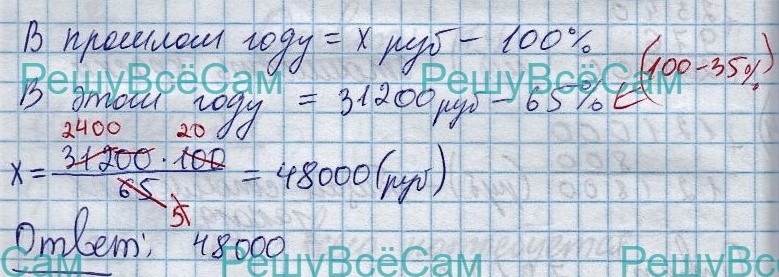 В прошлом году = х руб – 100%
(100–35%)
РешуВсёСам РешуВсёСам
В этом году = 31200 руб – 65% ←
2400 20
х = 31200 · 100 / 65 = 48000 (руб)
5
Ответ: 48000
Сам РешуВсёСам РешуВсёСам